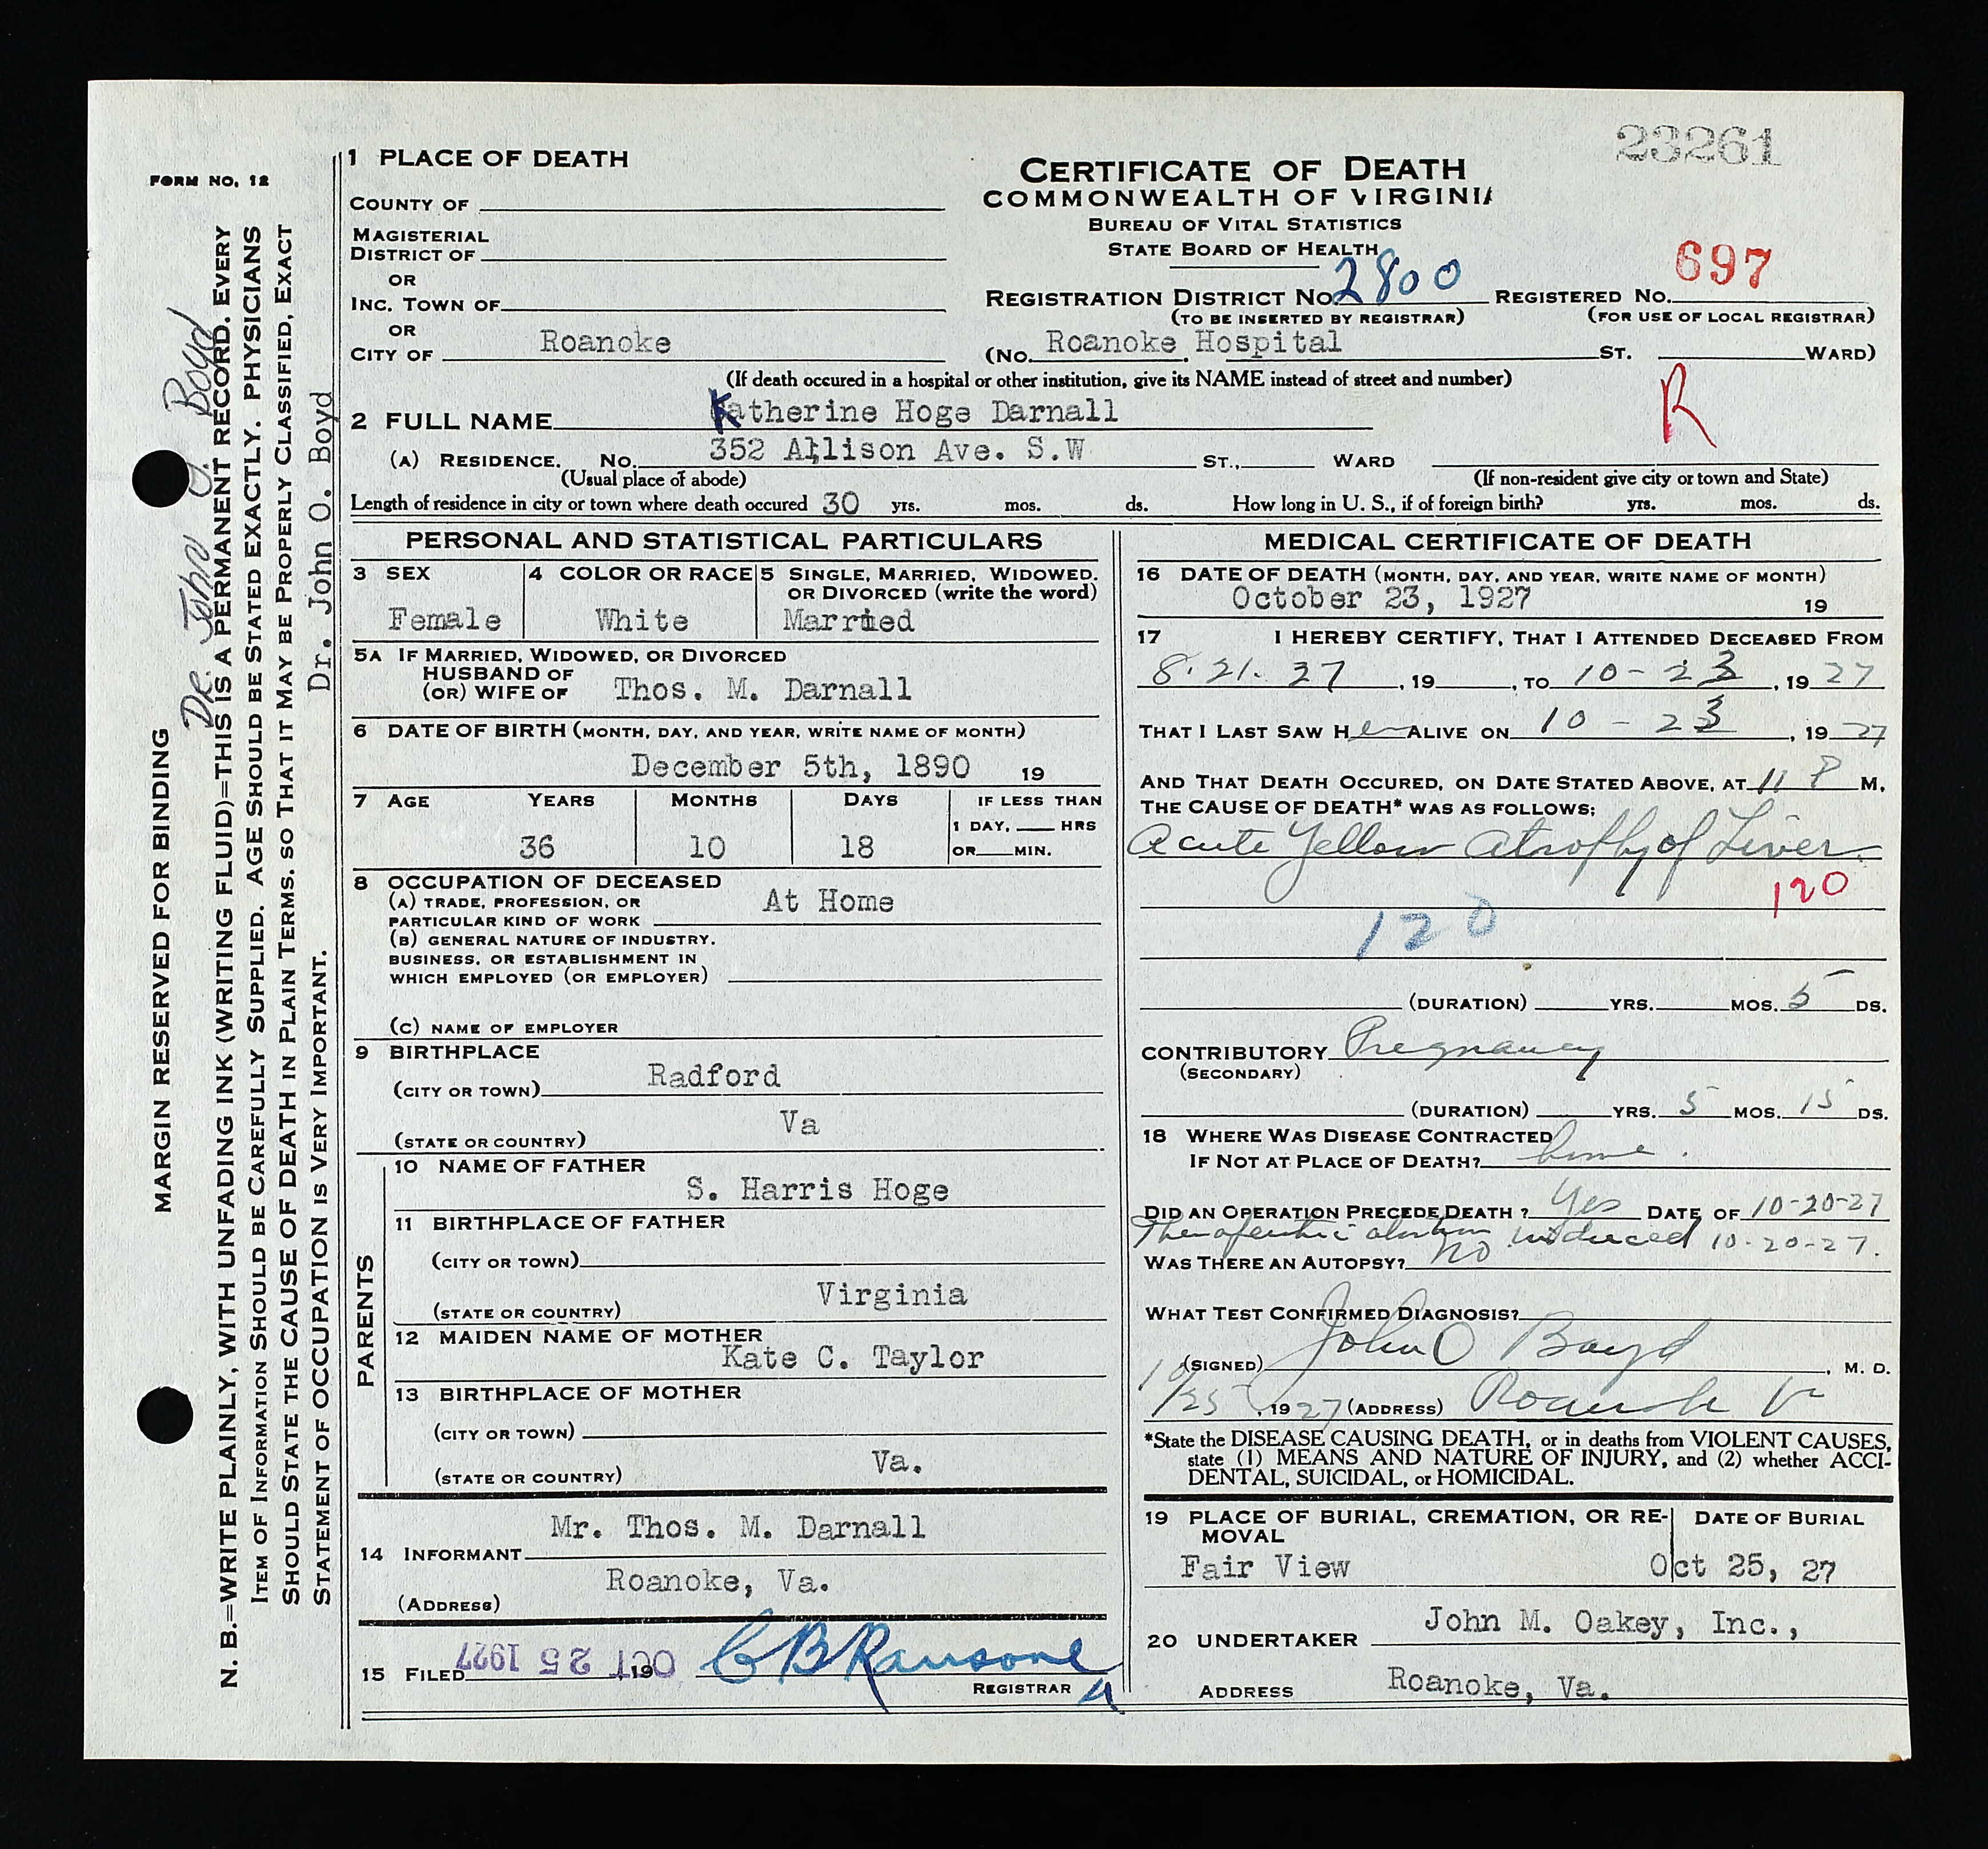 23261
FORM NO. 12
MARGIN RESERVED FOR BINDING
Dr. John O. Boyd
N. B.=WRITE PLAINLY, WITH UNFADING INK (WRITING FLUID)=THIS IS A PERMANENT RECORD. EVERY
ITEM OF INFORMATION SHOULD BE CAREFULLY SUPPLIED. AGE SHOULD BE STATED EXACTLY. PHYSICIANS
SHOULD STATE THE CAUSE OF DEATH IN PLAIN TERMS. SO THAT IT MAY BE PROPERLY CLASSIFIED, EXACT
STATEMENT OF OCCUPATION IS VERY IMPORTANT.
Dr. John O. Boyd
1 PLACE OF DEATH
COUNTY OF
MAGISTERIAL
DISTRICT OF
OR
INC. TOWN OF
OR
CITY OF Roanoke
CERTIFICATE OF DEATH
COMMONWEALTH OF VIRGINIA
BUREAU OF VITAL STATISTICS
STATE BOARD OF HEALTH
REGISTRATION DISTRICT NO. 2800 REGISTERED NO. 697
(TO BE INSERTED BY REGISTRAR) (FOR USE OF LOCAL REGISTRAR)
(NO. Roanoke Hospital ST. WARD)
(If death occured in a hospital or other institution, give its NAME instead of street and number)
R
2 FULL NAME Katherine Hoge Darnall
(A) RESIDENCE. NO. 352 Allison Ave. S.W. ST., WARD
(Usual place of abode) (If non-resident give city or town and State)
Length of residence in city or town where death occured 30 yrs. mos. ds. How long in U. S., if of foreign birth? yrs. mos. ds.
PERSONAL AND STATISTICAL PARTICULARS
3 SEX 4 COLOR OR RACE 5 SINGLE, MARRIED, WIDOWED,
OR DIVORCED (write the word)
Female White Married
5A IF MARRIED, WIDOWED, OR DIVORCED
HUSBAND OF
(OR) WIFE OF Thos. M. Darnall
6 DATE OF BIRTH (MONTH, DAY, AND YEAR, WRITE NAME OF MONTH)
December 5th, 1890 19
7 AGE YEARS MONTHS DAYS IF LESS THAN
1 DAY, HRS
36 10 18 OR MIN.
8 OCCUPATION OF DECEASED
(A) TRADE, PROFESSION, OR
PARTICULAR KIND OF WORK At Home
(B) GENERAL NATURE OF INDUSTRY.
BUSINESS, OR ESTABLISHMENT IN
WHICH EMPLOYED (OR EMPLOYER)
(C) NAME OF EMPLOYER
9 BIRTHPLACE
(CITY OR TOWN) Radford
Va
(STATE OR COUNTRY)
PARENTS
10 NAME OF FATHER
S. Harris Hoge
11 BIRTHPLACE OF FATHER
(CITY OR TOWN)
(STATE OR COUNTRY) Virginia
12 MAIDEN NAME OF MOTHER
Kate C. Taylor
13 BIRTHPLACE OF MOTHER
(CITY OR TOWN)
(STATE OR COUNTRY) Va.
14 INFORMANT Mr. Thos. M. Darnall
(ADDRESS) Roanoke, Va.
15 FILED OCT 25 1927 , 19 C B Ransone
REGISTRAR
MEDICAL CERTIFICATE OF DEATH
16 DATE OF DEATH (MONTH, DAY, AND YEAR, WRITE NAME OF MONTH)
October 23, 1927 19
17 I HEREBY CERTIFY, THAT I ATTENDED DECEASED FROM
8.21.27 , 19 , TO 10-23 , 19 27
THAT I LAST SAW Her ALIVE ON 10-23 , 19 27
AND THAT DEATH OCCURED, ON DATE STATED ABOVE, AT 11 P M.
THE CAUSE OF DEATH* WAS AS FOLLOWS:
Acute Yellow Atrophy of Liver.
120
120
(DURATION) YRS. MOS. 5 DS.
CONTRIBUTORY Pregnancy
(SECONDARY)
(DURATION) YRS. 5 MOS. 15 DS.
18 WHERE WAS DISEASE CONTRACTED
IF NOT AT PLACE OF DEATH? home.
DID AN OPERATION PRECEDE DEATH? Yes DATE OF 10-20-27
Therapeutic abortion induced 10-20-27.
WAS THERE AN AUTOPSY? NO
WHAT TEST CONFIRMED DIAGNOSIS?
(SIGNED) John O Boyd , M. D.
10/25 , 1927 (ADDRESS) Roanoke Va
*State the DISEASE CAUSING DEATH, or in deaths from VIOLENT CAUSES,
state (1) MEANS AND NATURE OF INJURY, and (2) whether ACCI-
DENTAL, SUICIDAL, or HOMICIDAL.
19 PLACE OF BURIAL, CREMATION, OR RE- DATE OF BURIAL
MOVAL
Fair View Oct 25, 27
20 UNDERTAKER John M. Oakey, Inc.,
ADDRESS Roanoke, Va.